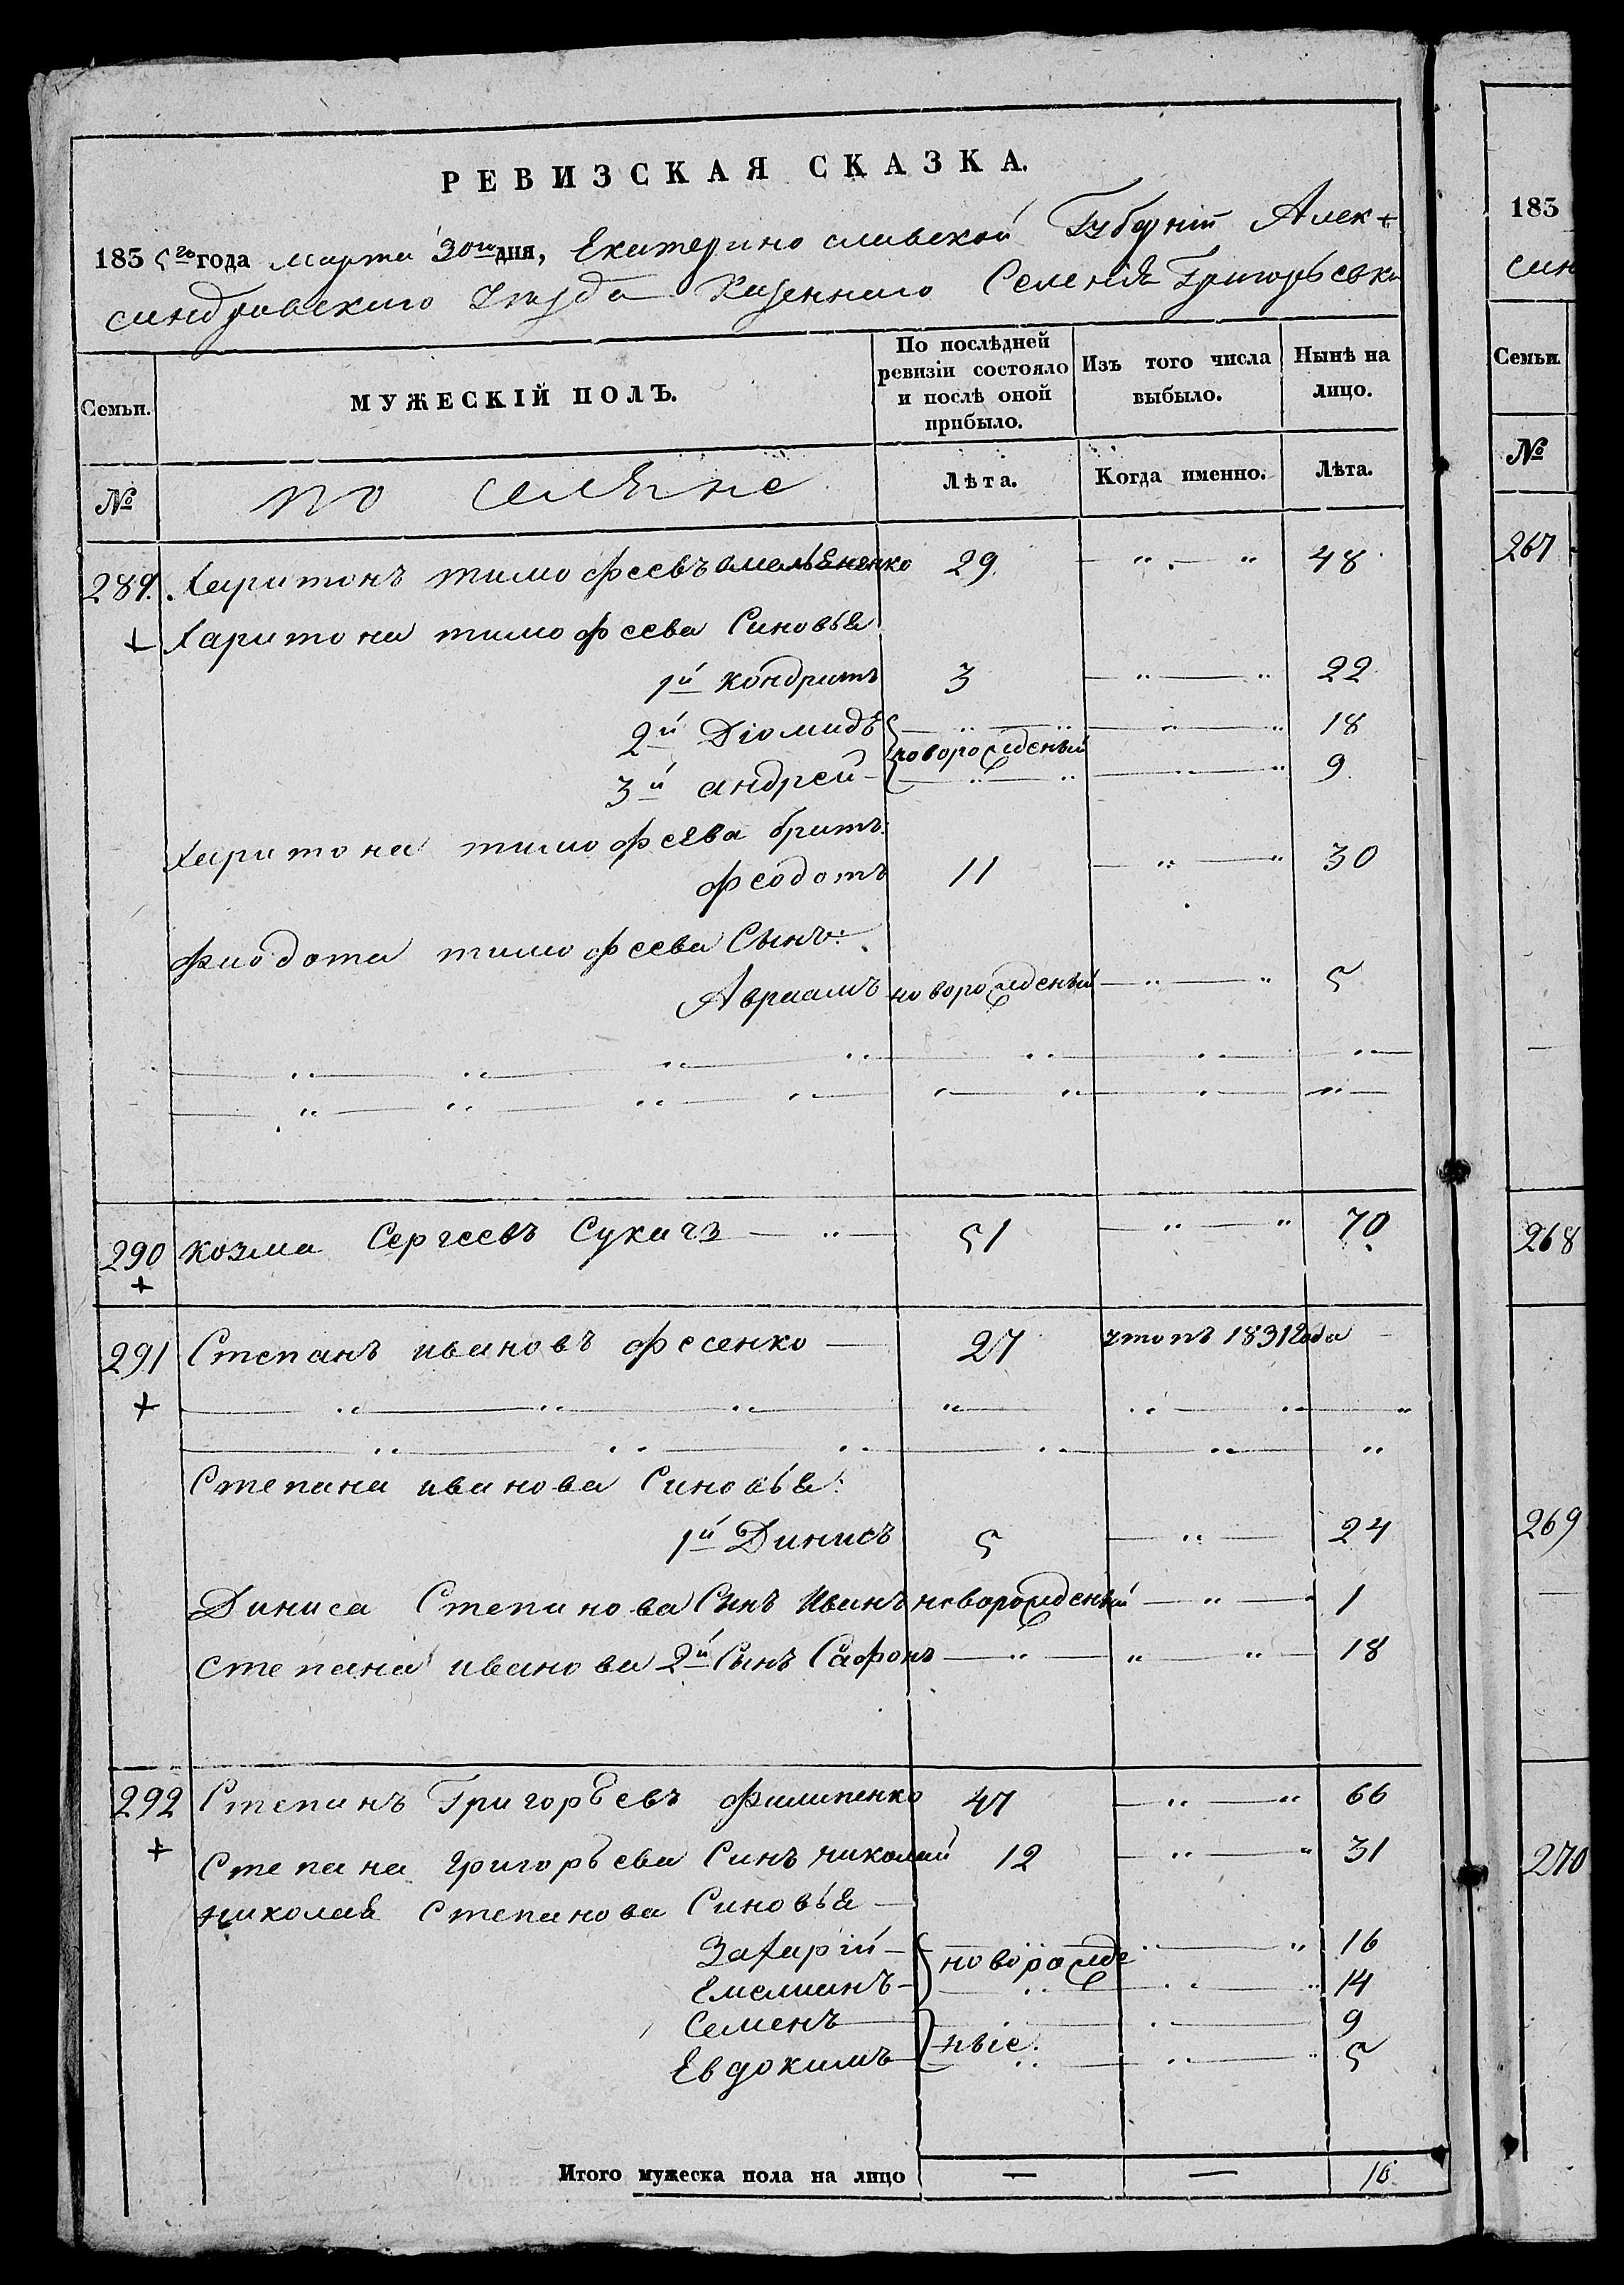 РЕВИЗСКАЯ СКАЗКА.
185 5го года марта 30го дня, Екатеринославской Губернiи Алек-
сандровского уезда Казенного Селенiя Григорьевки
Семьи. МУЖЕСКIЙ ПОЛЪ. По послѣдней ревизiи состояло и послѣ оной прибыло. Изъ того числа выбыло. Нынѣ на лицо.
№ Лѣта. Когда именно. Лѣта.
289. Харитонъ тимофеевъ омельяненко 29 48
Харитона тимофеева Синовья
1й кондратъ 3 22
2й Дiомидъ 18
новорожденый
3й андрей 9
Харитона тимофеева братъ:
феодотъ 11 30
Фиодота тимофеева Сынъ:
Авраамъ новорожденый 5
290 козма Сергеевъ Сукачъ 51 70
291 Степанъ ивановъ фесенко 27 1831 года
Степана иванова Синовья:
1й Динисъ 5 24
Диниса Степанова Синъ Иванъ новорожденый 1
Степана иванова 2й Сынъ Сафонъ 18
292 Степанъ Григорьевъ филипенко 47 66
Степана григорьева Синъ николай 12 31
николая Степанова Синовья
Захарiй 16
новорожде
Емелианъ 14
Семенъ 9
ныiе.
Евдокимъ 5
Итого мужеска пола на лицо — — 16
185
сан
Семьи.
№
267
268
269
270